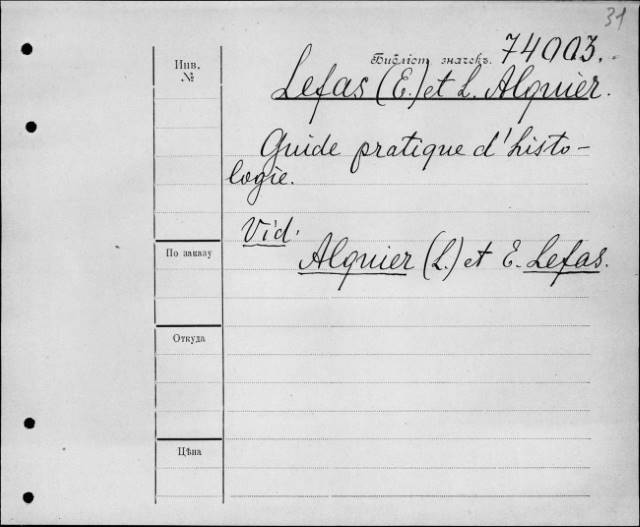 31
Библіот. значекъ. 74003.
Инв.
№
Lefas (E.) et L. Alquier.
Guide pratique d'histo-
logie.
Vid.
Alquier (L.) et E. Lefas.
По заказу
Откуда
Цѣна